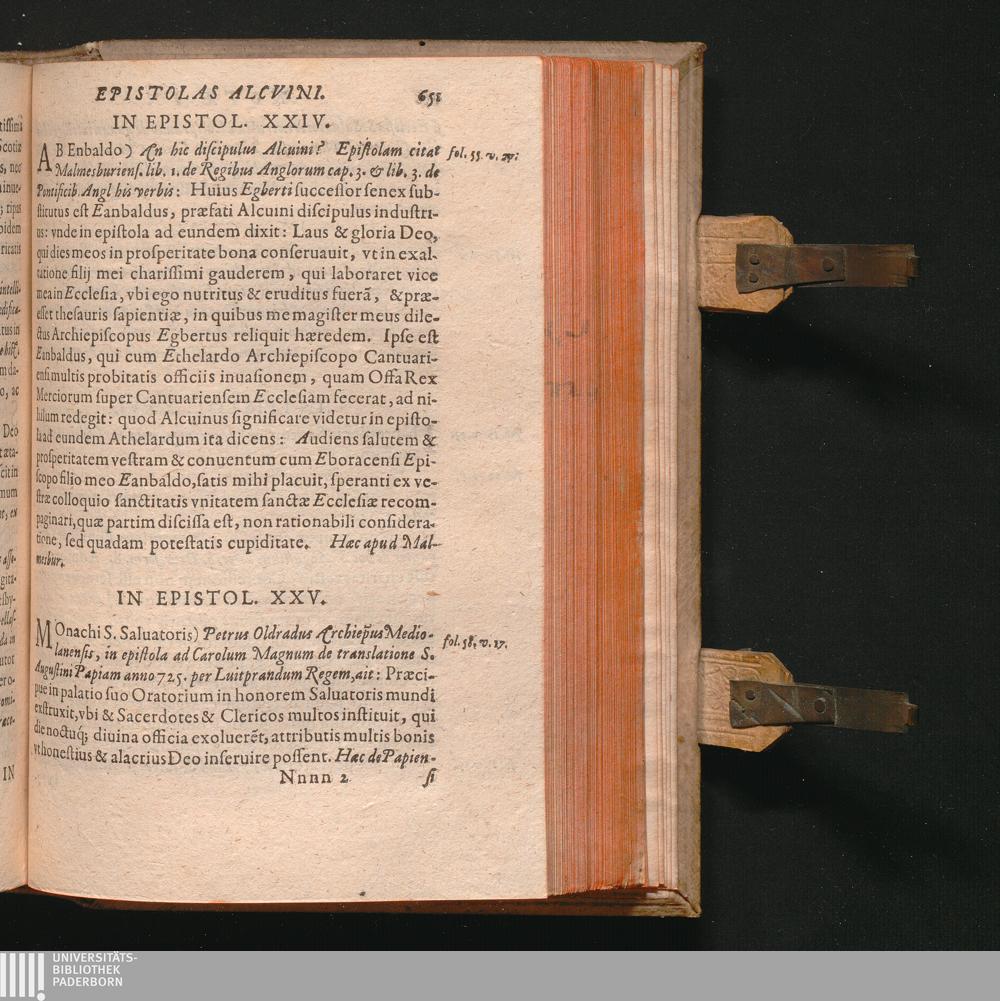 EPISTOLAS ALCVINI. 651
IN EPISTOL. XXIV.
AB Enbaldo) An hic diſcipulus Alcuini? Epiſtolam citat
fol. 55. v. 27:
Malmesburienſ. lib. 1. de Regibus Anglorum cap. 3. & lib. 3. de
Pontificib. Angl his verbis: Huius Egberti ſucceſſor ſenex ſub-
ſtitutus eſt Eanbaldus, præfati Alcuini diſcipulus induſtri-
us: vnde in epiſtola ad eundem dixit: Laus & gloria Deo,
qui dies meos in proſperitate bona conſeruauit, vt in exal-
tatione filij mei chariſſimi gauderem, qui laboraret vice
mea in Eccleſia, vbi ego nutritus & eruditus fuerã, & præ-
eſſet theſauris ſapientiæ, in quibus me magiſter meus dile-
ctus Archiepiſcopus Egbertus reliquit hæredem. Ipſe eſt
Eanbaldus, qui cum Ethelardo Archiepiſcopo Cantuari-
enſi multis probitatis officiis inuaſionem, quam Offa Rex
Merciorum ſuper Cantuarienſem Eccleſiam fecerat, ad ni-
hilum redegit: quod Alcuinus ſignificare videtur in epiſto-
la ad eundem Athelardum ita dicens: Audiens ſalutem &
proſperitatem veſtram & conuentum cum Eboracenſi Epi-
ſcopo filio meo Eanbaldo, ſatis mihi placuit, ſperanti ex ve-
ſtræ colloquio ſanctitatis vnitatem ſanctæ Eccleſiæ recom-
paginari, quæ partim diſciſſa eſt, non rationabili conſidera-
tione, ſed quadam poteſtatis cupiditate. Hæc apud Mal-
mesbur.
IN EPISTOL. XXV.
MOnachi S. Saluatoris) Petrus Oldradus Archiep̃us Medio-
fol. 58. v. 17.
lanenſis, in epiſtola ad Carolum Magnum de translatione S.
Auguſtini Papiam anno 725. per Luitprandum Regem, ait: Præci-
pue in palatio ſuo Oratorium in honorem Saluatoris mundi
exſtruxit, vbi & Sacerdotes & Clericos multos inſtituit, qui
die noctuq́; diuina officia exoluerẽt, attributis multis bonis
vt honeſtius & alacrius Deo inſeruire poſſent. Hæc de Papien-
Nnnn 2 ſi
UNIVERSITÄTS-
BIBLIOTHEK
PADERBORN